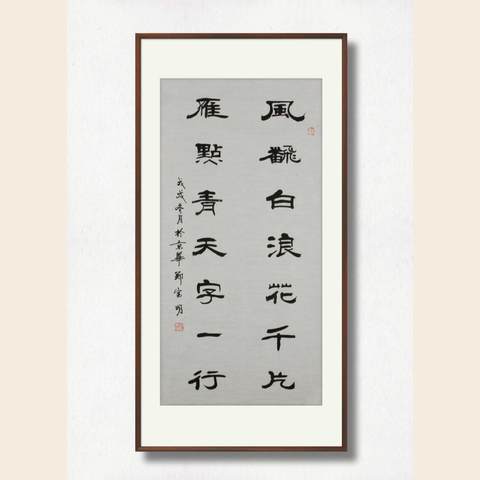 風飜白浪花千片
雁點青天字一行
戊戌冬月於京華鄭富明